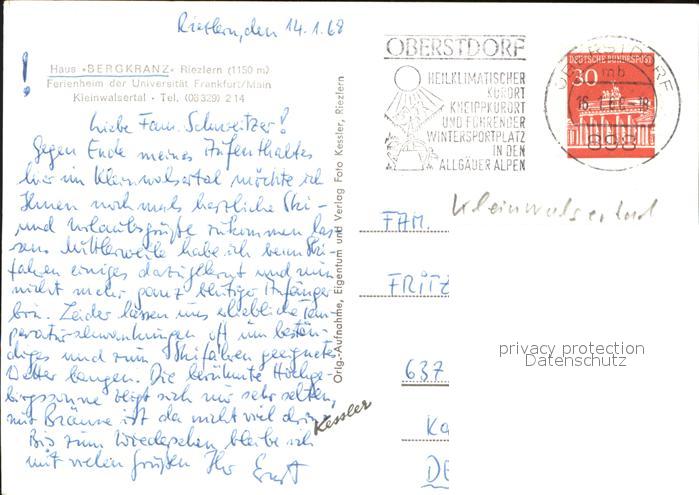 Riezlern, den 14.1.68
!
Haus »BERGKRANZ« Riezlern (1150 m)
Ferienheim der Universität Frankfurt/Main
Kleinwalsertal · Tel. (08329) 214
Liebe Fam. Schweitzer!
Gegen Ende meines Aufenthaltes
hier im Kleinwalsertal möchte ich
Ihnen nochmals herzliche Ski-
und Urlaubsgrüße zukommen las-
sen. Mittlerweile habe ich beim Ski-
fahren einiges dazugelernt und nun
nicht mehr ganz blutiger Anfänger
bin. Leider lassen uns erhebliche Tem-
peraturschwankungen oft um bestän-
diges und zum Skifahren geeignetes
Wetter bangen. Die berühmte Hochge-
birgssonne zeigt sich nur sehr selten,
mit Bräune ist da nicht viel drin.
Bis zum Wiedersehen bleibe ich
mit vielen Grüßen Ihr Ernst
Orig.-Aufnahme, Eigentum und Verlag Foto Kessler, Riezlern
Kessler
OBERSTDORF
HEILKLIMATISCHER
KURORT
KNEIPPKURORT
UND FÜHRENDER
WINTERSPORTPLATZ
IN DEN
ALLGÄUER ALPEN
DEUTSCHE BUNDESPOST
30
OBERSTDORF
mb
898
Kleinwalsertal
FAM.
FRITZ
637
privacy protection
Datenschutz